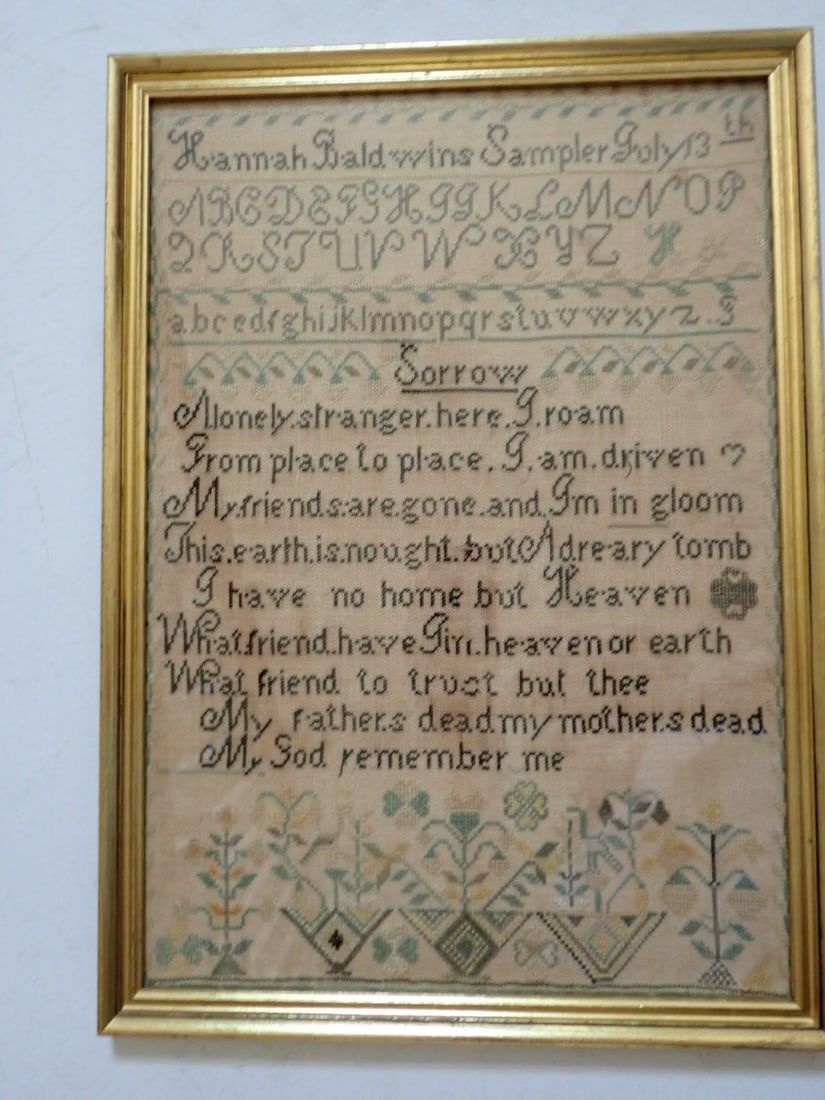 Hannah Baldwins Sampler July 13th
ABCDEFGHIJKLMNOP
QRSTUVWXYZ H
abcedfghijklmnopqrstuvwxyz.
Sorrow
A.lonely.stranger.here.I.roam
From place to place.I.am.driven
My.friends.are.gone.and.I'm in gloom
This.earth.is.nought.but A dreary tomb
I have no home but Heaven
What.friend.have I in.heaven or earth
What friend to trust but thee
My fathers dead my mothers dead
My God remember me